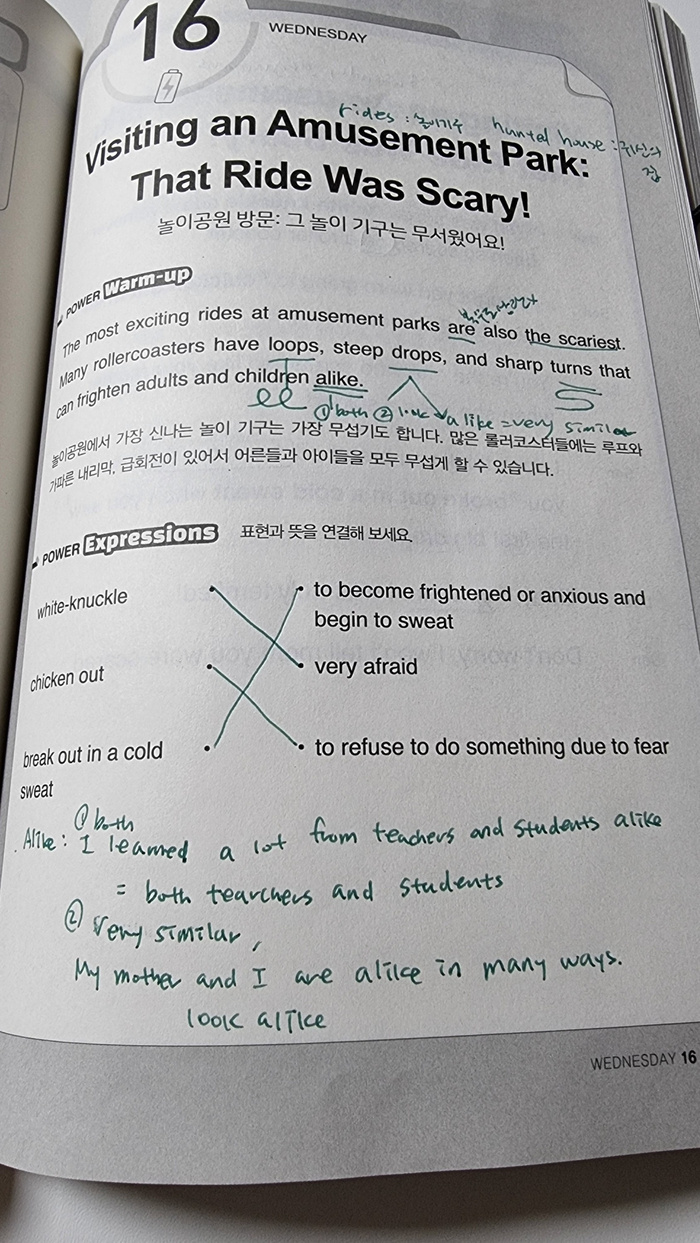 16
WEDNESDAY
rides : 놀이기구 huntel house : 귀신의 집
Visiting an Amusement Park:
That Ride Was Scary!
놀이공원 방문: 그 놀이 기구는 무서웠어요!
POWER Warm-up
The most exciting rides at amusement parks are also the scariest.
Many rollercoasters have loops, steep drops, and sharp turns that
can frighten adults and children alike.
① both ② look alike = very similar
놀이공원에서 가장 신나는 놀이 기구는 가장 무섭기도 합니다. 많은 롤러코스터들에는 루프와
가파른 내리막, 급회전이 있어서 어른들과 아이들을 모두 무섭게 할 수 있습니다.
POWER Expressions 표현과 뜻을 연결해 보세요.
white-knuckle
to become frightened or anxious and
begin to sweat
chicken out
very afraid
break out in a cold
sweat
to refuse to do something due to fear
① both
Alike : I learned a lot from teachers and students alike
= both tearchers and students
② Very similar,
My mother and I are alike in many ways.
look alike
WEDNESDAY 16